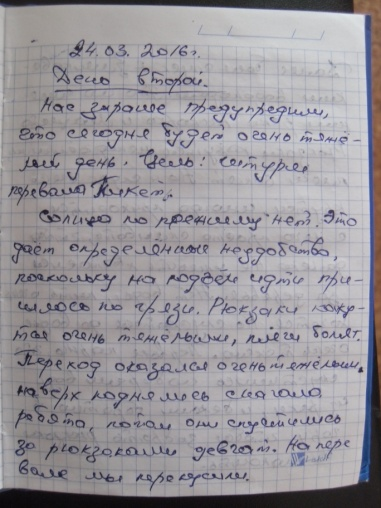 24.03.2016г.
День второй.
Нас заранее предупредили,
что сегодня будет очень тяжё-
лый день. Цель: штурм
перевала Пикет.
Солнца по прежнему нет. Это
даёт определённые неудобства,
поскольку на подъём идти при-
шлось по грязи. Рюкзаки кажу-
тся очень тяжёлыми, плечи болят.
Переход оказался очень тяжёлым.
наверх поднялись сначала
ребята, потом они спустились
за рюкзаками девчат. На пере
вале мы перекусили.